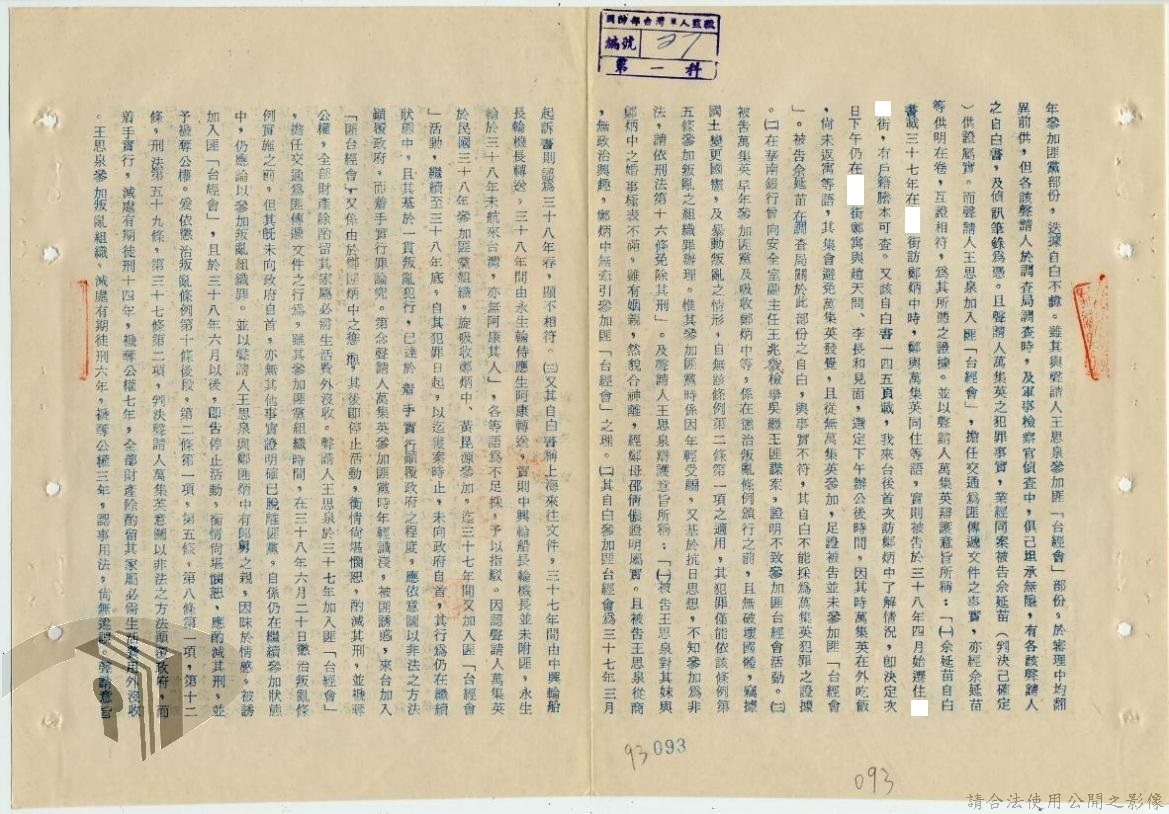 國防部台灣軍人監獄
編號 27
第一科
年參加匪黨部份,迭據自白不諱。雖其與聲請人王思泉參加匪「台經會」部份,於審理中均翻
異前供,但各該聲請人於調查局調查時,及軍事檢察官偵查中,俱已坦承無隱,有各該聲請人
之自白書,及偵訊筆錄為憑。且聲請人萬集英之犯罪事實,業經同案被告余延苗(判決已確定
)供證屬實。而聲請人王思泉加入匪「台經會」,擔任交通為匪傳遞文件之事實,亦經余延苗
等供明在卷,互證相符,為其所憑之證據。並以聲請人萬集英辯護意旨所稱:「㈠余延苗自白
書載三十七年在 街訪鄭炳中時,鄭與萬集英同住等語,實則被告於三十八年四月始遷住
街,有戶籍謄本可查。又該自白書一四五頁載,我來台後首次訪鄭炳中了解情況,卽決定次
日下午仍在 街鄭寓與趙天問、李長和見面,選定下午辦公後時間,因其時萬集英在外吃飯
,尚未返寓等語,其集會避免萬集英發覺,且從無萬集英參加,足證被告並未參加匪「台經會
」。被告余延苗在調查局關於此部份之自白,與事實不符,其自白不能採為萬集英犯罪之證據
。㈡在華南銀行曾向安全室副主任王兆 檢舉吳繼王匪諜案,證明不致參加匪台經會活動。㈢
被告萬集英早年參加匪黨及吸收鄭炳中等,係在懲治叛亂條例頒行之前,且無破壞國體,竊據
國土變更國憲,及暴動叛亂之情形,自無該條例第二條第一項之適用,其犯罪僅能依該條例第
五條參加叛亂之組織罪辦理。惟其參加匪黨時係因年輕受騙,又基於抗日思想,不知參加為非
法,請依刑法第十六條免除其刑」。及聲請人王思泉辯護意旨所稱:「㈠被告王思泉對其妹與
鄭炳中之婚事極表不滿,雖有姻親,然貌合神離,經鄭母邵倩儂證明屬實。且被告王思泉從商
,無政治興趣,鄭炳中無牽引參加匪「台經會」之理。㈡其自白參加匪台經會為三十七年三月
起訴書則認為三十八年春,顯不相符。㈢又其自白書稱上海來往文件,三十七年間由中興輪船
長輪機長轉送,三十八年間由永生輪侍應生阿康轉送,實則中興輪船長輪機長並未附匪,永生
輪於三十八年未航來台灣,亦無阿康其人」,各等語為不足採,予以指駁。因認聲請人萬集英
於民國二十八年參加匪黨組織,旋吸收鄭炳中、黃昆源參加,迄三十七年間又加入匪「台經會
」活動,繼續至三十八年底,自其犯罪日起,以迄獲案時止,未向政府自首,其行為仍在繼續
狀態中,且其基於一貫叛亂犯行,已達於着手實行顛覆政府之程度,應依意圖以非法之方法
顛覆政府,而着手實行罪論究。第念聲請人萬集英參加匪黨時年輕識淺,被匪誘惑,來台加入
「匪台經會」,又係由於鄭匪炳中之 ,其後卽停止活動,衡情尚堪憫恕,酌減其刑,並褫奪
公權,全部財產除酌留其家屬必需生活費外沒收。聲請人王思泉於三十七年加入匪「台經會」
,擔任交通為匪傳遞文件之行為,雖其參加匪黨組織時間,在三十八年六月二十日懲治叛亂條
例實施之前,但其旣未向政府自首,亦無其他事實證明確已脫離匪黨,自係仍在繼續參加狀態
中,仍應論以參加叛亂組織罪。並以聲請人王思泉與鄭匪炳中有郎舅之親,因昧於情感,被誘
加入匪「台經會」,且於三十八年六月以後,卽告停止活動,衡情尚堪憫恕,應酌減其刑,並
予褫奪公權。爰依懲治叛亂條例第十條後段,第二條第一項,第五條,第八條第一項,第十二
條,刑法第五十九條,第三十七條第二項,判決聲請人萬集英意圖以非法之方法顛覆政府,而
着手實行,減處有期徒刑十四年,褫奪公權七年,全部財產除酌留其家屬必需生活費用外沒收
。王思泉參加叛亂組織,減處有期徒刑六年,褫奪公權三年,認事用法,尚無違誤。聲請意旨
93 093
093
請合法使用公開之影像